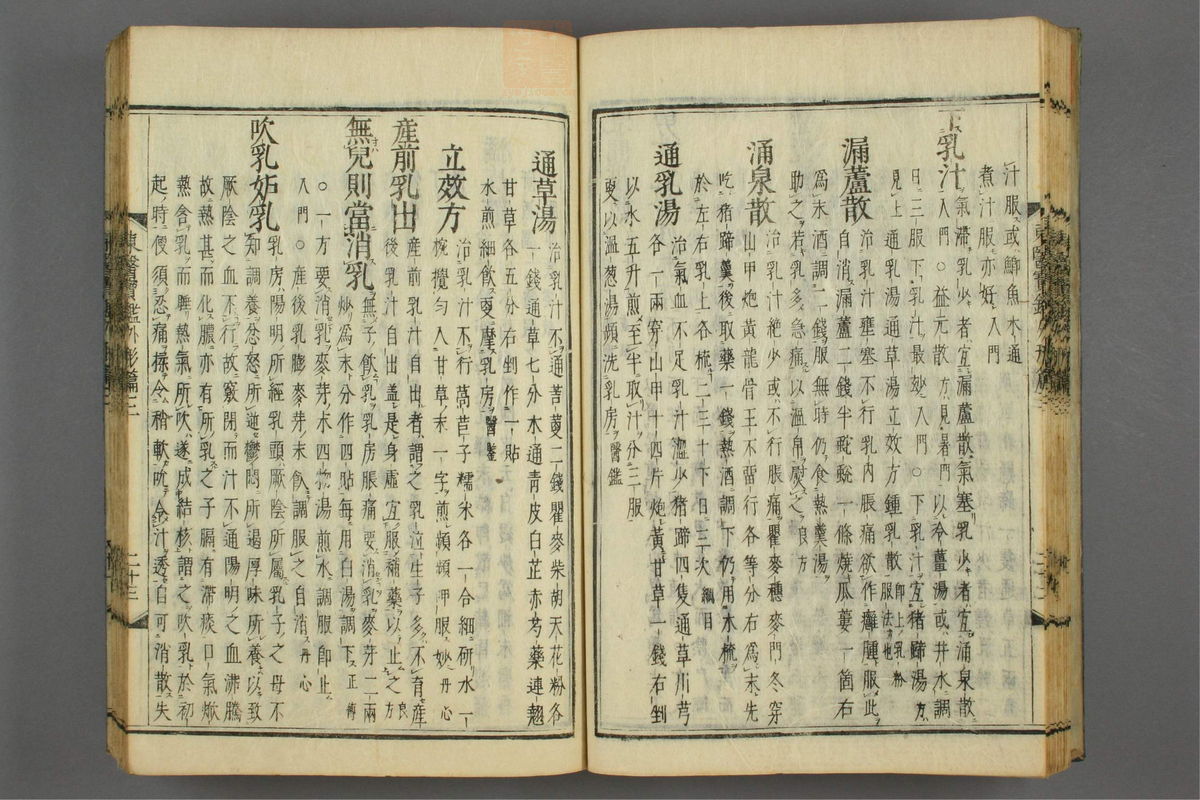 汁服或鯽魚木通
煮汁服亦好入門
下乳汁氣滯乳少者宜漏蘆散氣塞乳少者宜涌泉散
入門○益元散方見暑門以冷薑湯或井水調
日三服下乳汁最効入門○下乳汁宜猪蹄湯方
見上通乳湯通草湯立效方鍾乳散即上乳粉服法也
漏蘆散通乳汁壅塞不行乳內脹痛欲作癰腫服此
自消漏蘆二錢半蛇蛻一條燒瓜蔞一箇右
爲末酒調二錢服無時仍食熱羹湯
助之若乳多急痛以溫帛熨之良方
涌泉散治乳汁絶少或不行脹痛瞿麥穗麥門冬穿
山甲炮黃龍骨王不留行各等分右爲末先
吃猪蹄羹後取藥一錢熱酒調下仍用木梳
於左右乳上各梳二三十下日三次綱目
通乳湯治氣血不足乳汁澁少猪蹄四隻通草川芎
各一兩穿山甲十四片炮黃甘草一錢右剉
以水五升煎至半取汁分三服
更以溫葱湯頻洗乳房醫鑑
通草湯治乳汁不通苦蔞二錢瞿麥柴胡天花粉各
一錢通草七分木通靑皮白芷赤芍藥連翹
甘草各五分右剉作一貼
水煎細飮更摩乳房醫鑑
立效方治乳汁不行萵苣子糯米各一合細研水一
椀攪勻入甘草末一字煎頻頻呷服妙丹心
產前乳出產前乳汁自出者謂之乳泣生子多不育產
後乳汁自出盖是身虛宜服補藥以止之良方
無兒則當消乳無子飮乳乳房脹痛要消乳麥芽二兩
炒爲末分作四貼每用白湯調下正傳
○一方要消乳麥芽末四物湯煎水調服卽止
入門○產後乳膨麥芽末飮調服之自消丹心
吹乳妬乳乳房陽明所經乳頭厥陰所屬乳子之母不
知調養忿怒所逆鬱悶所遏厚味所養以致
厥陰之血不行故竅閉而汁不通陽明之血沸騰
故熱甚而化膿亦有所乳之子膈有滯痰口氣焮
熱含乳而睡熱氣所吹遂成結核謂之吹乳於初
起時便須忍痛揉令稍軟吮令汁透自可消散失
東醫寶鑑外形篇三
二十三